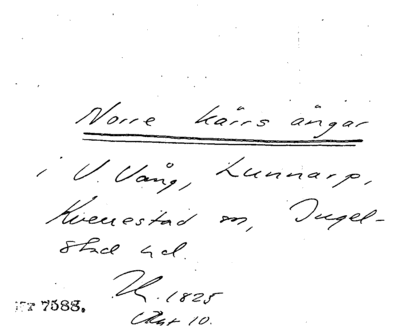 Norre kärrs ängar
i V. Vång, Lunnarp,
Kverrestad sn, Ingel-
stad hd.
1825
Akt 10.
7588.